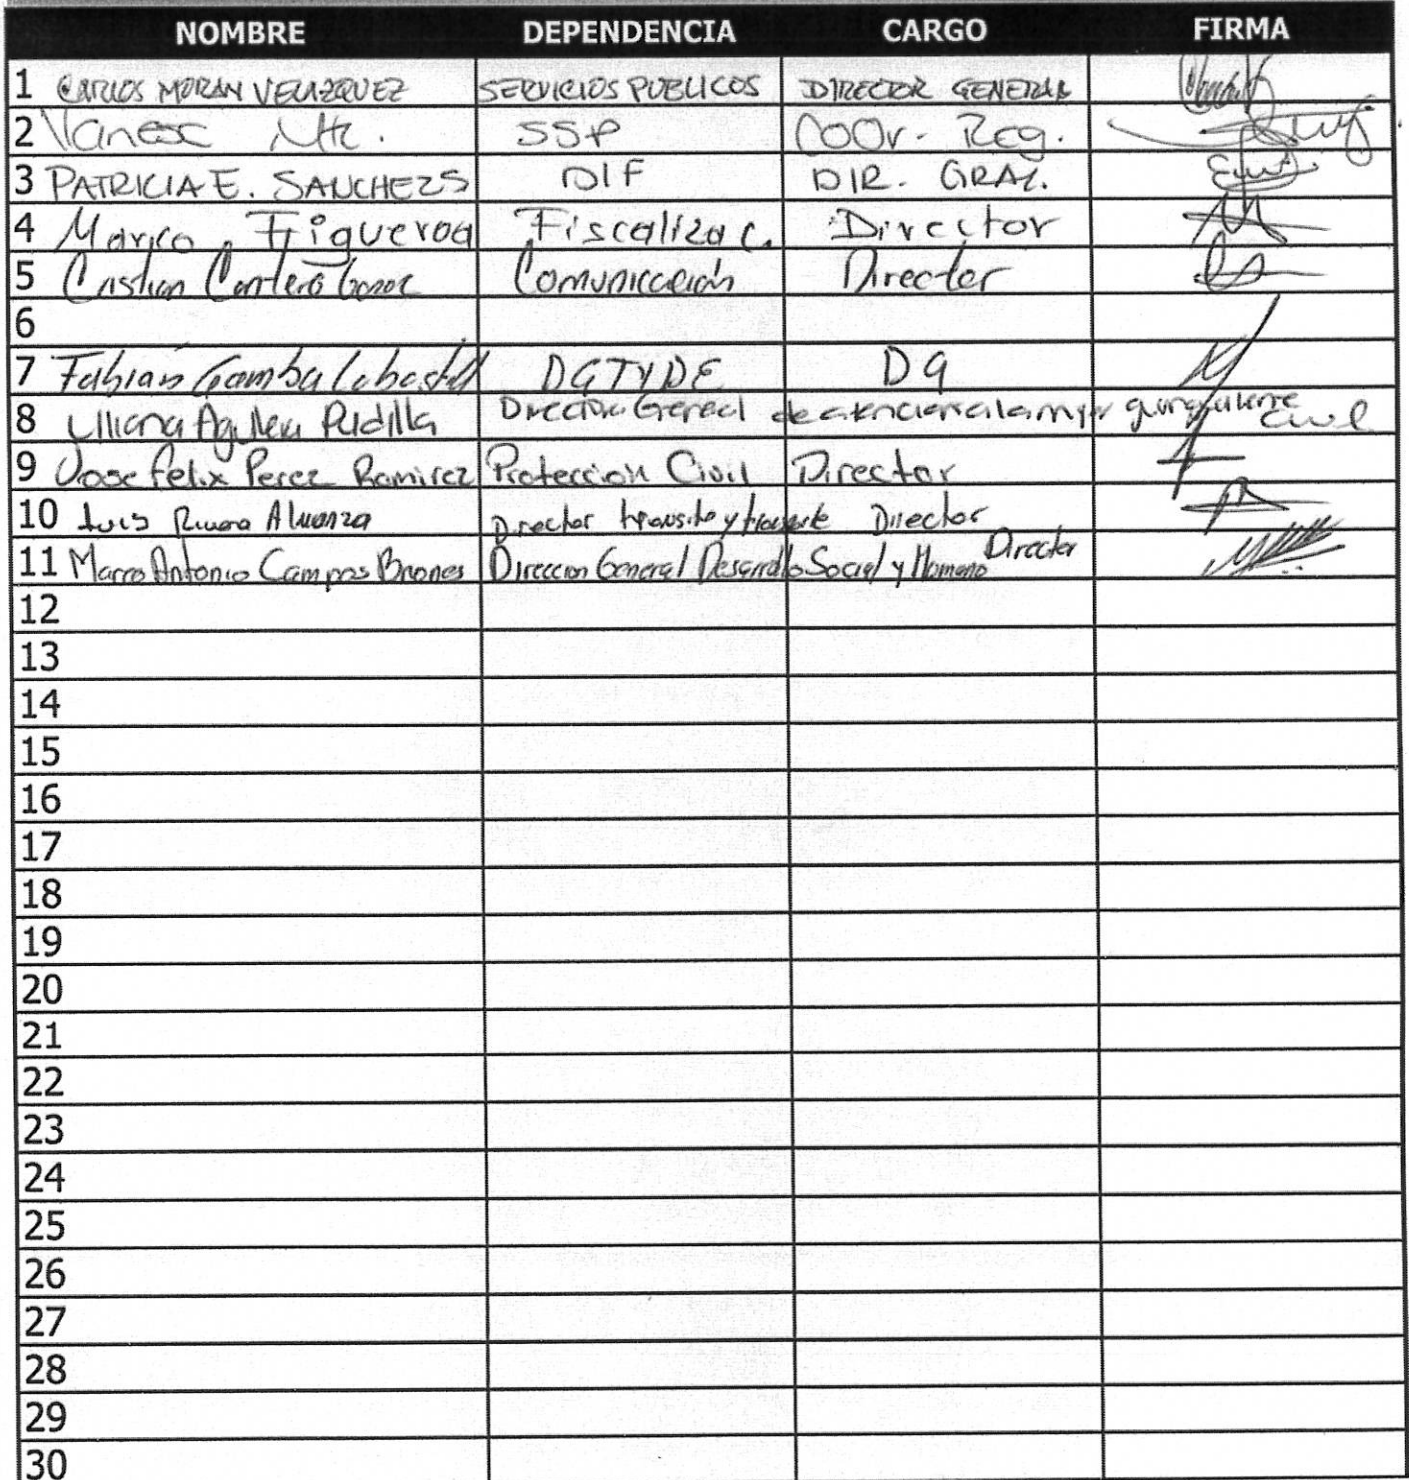 NOMBRE DEPENDENCIA CARGO FIRMA
1 CARLOS MORAN VELAZQUEZ SERVICIOS PUBLICOS DIRECTOR GENERAL
2 SSP Coor. Reg.
3 PATRICIA E. SANCHEZ S DIF DIR. GRAL.
4 Marco Figueroa Fiscalizac. Director
5 Cristian Comunicación Director
6
7 Fabián Gamba DGTYDE DG
8 Liliana Aguilera Padilla Dirección General de atención a la mujer
9 Jose Felix Perez Ramirez Protección Civil Director
10 Luis Rivera Almanza Director transito y transporte Director
11 Marco Antonio Campos Briones Direccion General Desarrollo Social y Humano Director
12
13
14
15
16
17
18
19
20
21
22
23
24
25
26
27
28
29
30